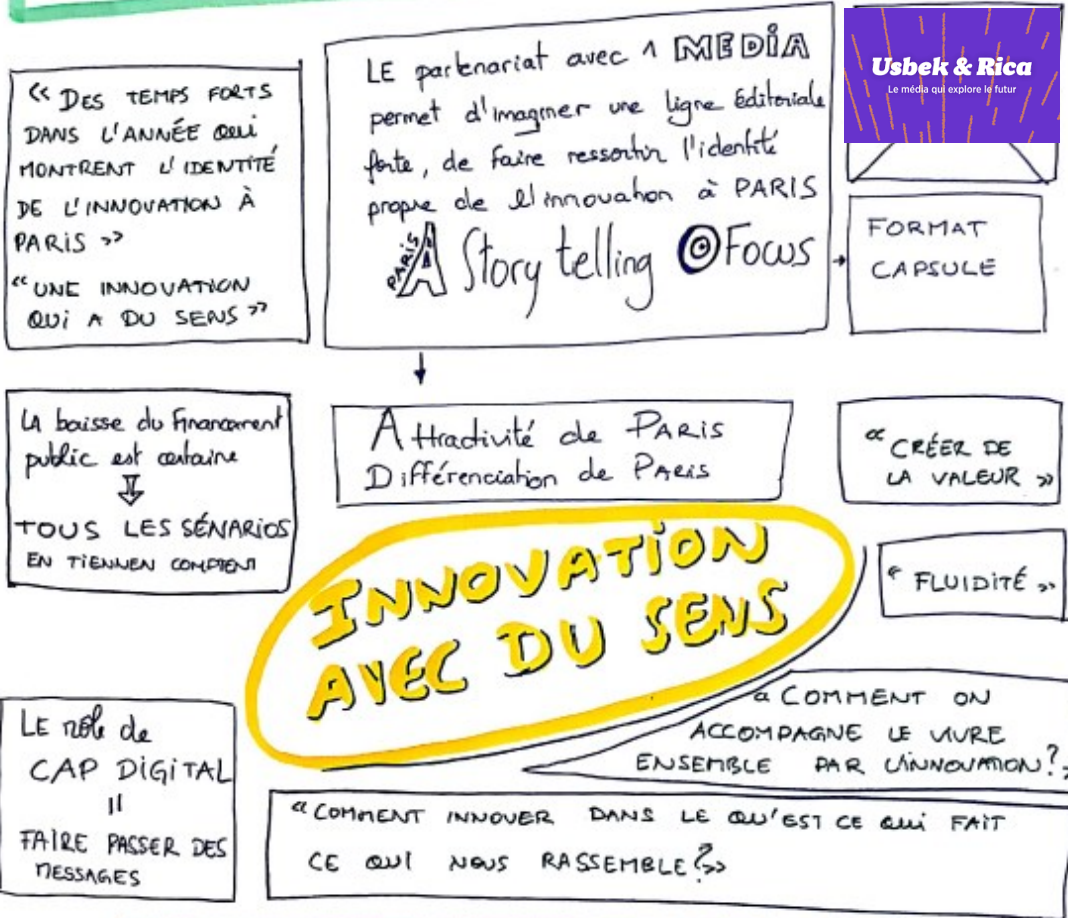 « DES TEMPS FORTS
DANS L'ANNÉE QUI
MONTRENT L'IDENTITÉ
DE L'INNOVATION À
PARIS »
« UNE INNOVATION
QUI A DU SENS »
LE partenariat avec 1 MEDIA
permet d'imaginer une ligne éditoriale
forte, de faire ressortir l'identité
propre de l'innovation à PARIS
PARIS Story telling Focus
Usbek & Rica
Le média qui explore le futur
FORMAT
CAPSULE
La baisse du financement
public est certaine
TOUS LES SÉNARIOS
EN TIENNEN COMPTENT
Attractivité de PARIS
Différenciation de PARIS
« CRÉER DE
LA VALEUR »
« FLUIDITÉ »
INNOVATION
AVEC DU SENS
« COMMENT ON
ACCOMPAGNE LE VIVRE
ENSEMBLE PAR L'INNOVATION? »
LE rôle de
CAP DIGITAL
=
FAIRE PASSER DES
MESSAGES
« COMMENT INNOVER DANS LE QU'EST CE QUI FAIT
CE QUI NOUS RASSEMBLE? »